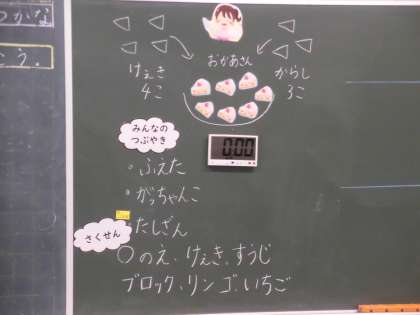 おかあさん
けえき
4こ
からし
3こ
みんなの
つぶやき
000
・ふえた
・がっちゃんこ
・たしざん
さくせん
○のえ、けえき、すうじ
ブロック、リンゴ、いちご